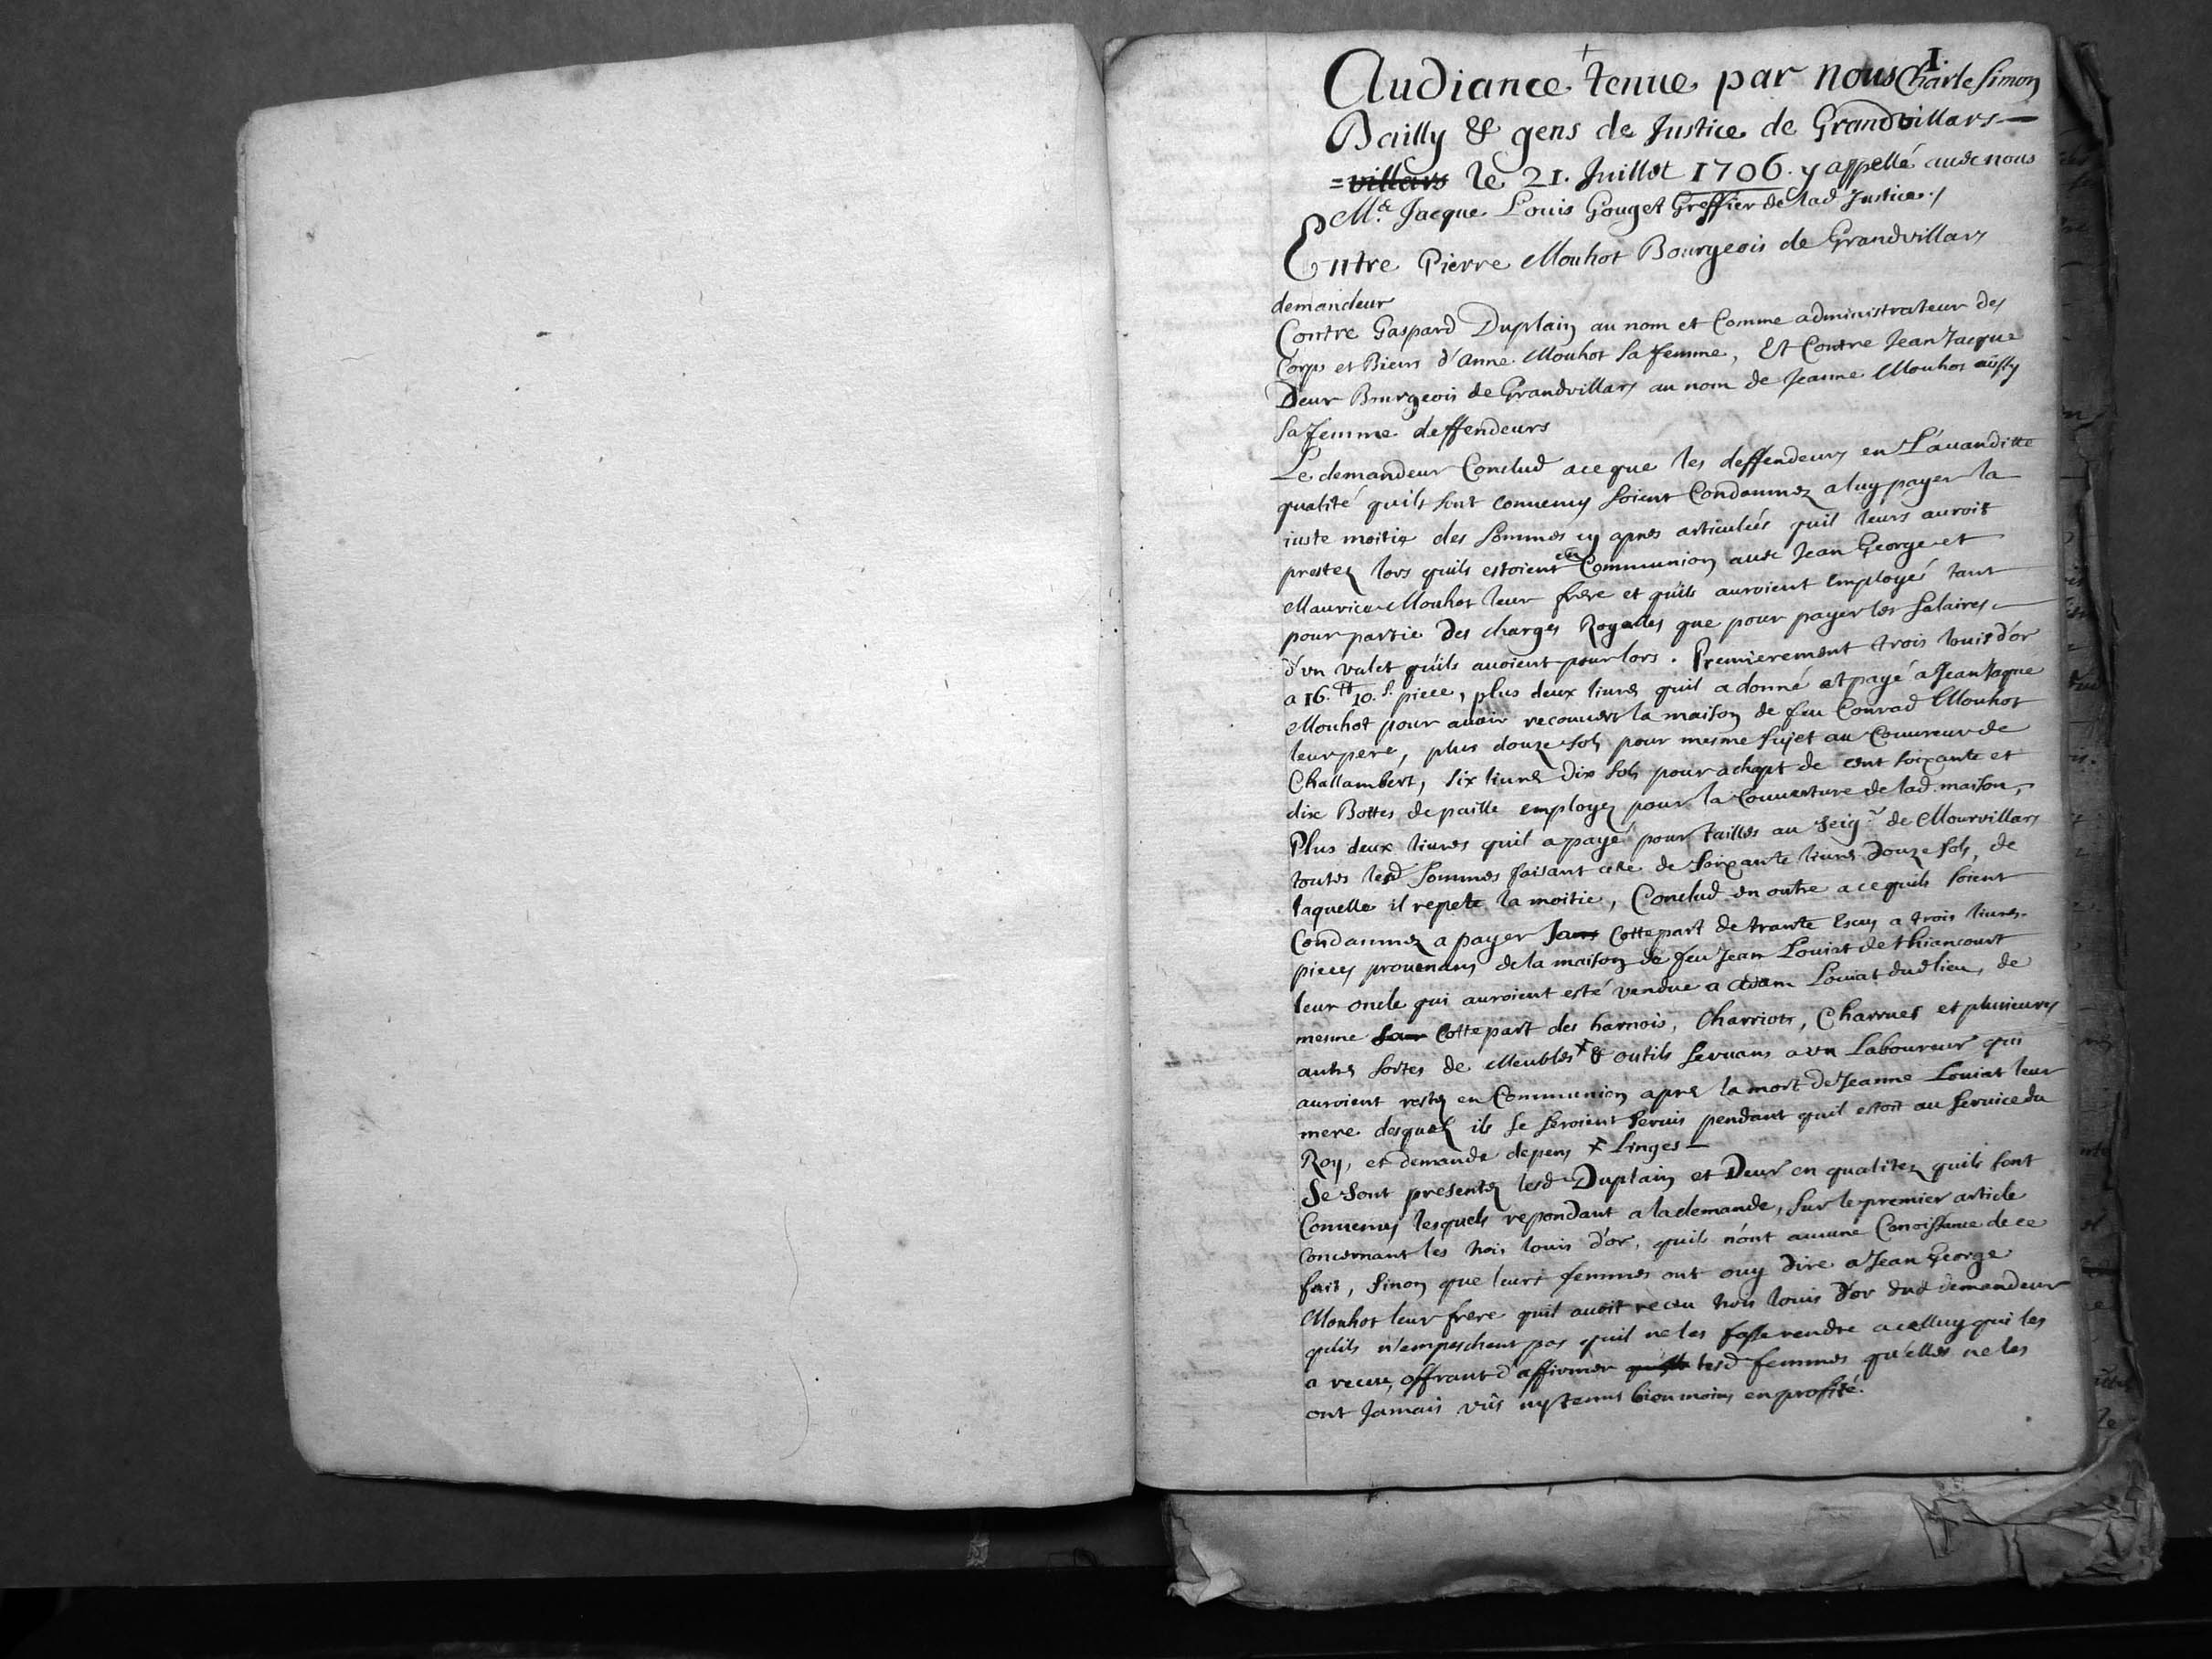 1.
Audiance tenue par nous Charle Simon
Bailly & gens de Justice de Grandvillars
=villars le 21. Juillet 1706. y appellé auec nous
Me. Jacque Louis Gouget Greffier de lad Justice./
Entre Pierre Mouhot Bourgeois de Grandvillars
demandeur
Contre Gaspard Duplain au nom et Comme administrateur des
Corps et Biens d'anne Mouhot sa femme, Et Contre Jean Jacque
Deur Bourgeois de Grandvillars au nom de Jeanne Mouhot aussy
sa femme deffendeurs
Le demandeur Conclud a ce que les deffendeurs en L'auanditte
qualité quils sont conuenus soient Condamnez a luy payer la
iuste moitie des sommes cy apres articulées quil leurs auroit
prestez lors quils estoient en Communion auec Jean George et
Maurice Mouhot leur frere et quils auroient Employés tant
pour partie des charges Royalles que pour payer les salaires
d'vn valet quils auoient pour lors. Premierement trois louis d'or
a 16.tt 10.s piece, plus deux liures quil a donné et payé a Jean Jaque
Mouhot pour auoir recouuert la maison de feu Conrad Mouhot
leur pere, plus douze sols pour mesme sujet au Couureur de
Challambert, six liures dix sols pour achapt de cent soixante et
dix Bottes de paille employez pour la Couuerture de lad. maison,
Plus deux liures quil a payé pour tailles au seigr de Mourvillars
toutes lesd sommes faisant celle de soixante liures douze sols, de
laquelle il repete la moitie, Conclud en outre a ce quils soient
Condamnez a payer Cottepart de trante Escus a trois liures
pieces prouenans de la maison de feu Jean Louiat de thiancourt
leur oncle qui auroient esté vendue a adam Louiat dud lieu, de
mesme Cottepart des harnois, Charriots, Charrues et plusieurs
autres sortes de Meubles + & outils seruans a vn Laboureur qui
auroient restez en Communion apres la mort de Jeanne Louiat leur
mere desquels ils se seroient seruis pendant quil estoit au seruice du
Roy, et demande depens + Linges
Se sont presentez lesd Duplain et Deur en qualitez quils sont
Conuenus lesquels repondant a la demande, sur le premier article
concernant les trois louis d'or, quils n'ont aucune Conoissance de ce
fait, sinon que leurs femmes ont ouy dire a Jean George
Mouhot leur frere quil auoit receu trois louis d'or dud demandeur
qu'ils n'empeschent pas quil ne les fasse rendre a celluy qui les
a receu, offrant d'affirmer lesd femmes qu'elles ne les
ont Jamais vûs ny tenus bien moins en profité.